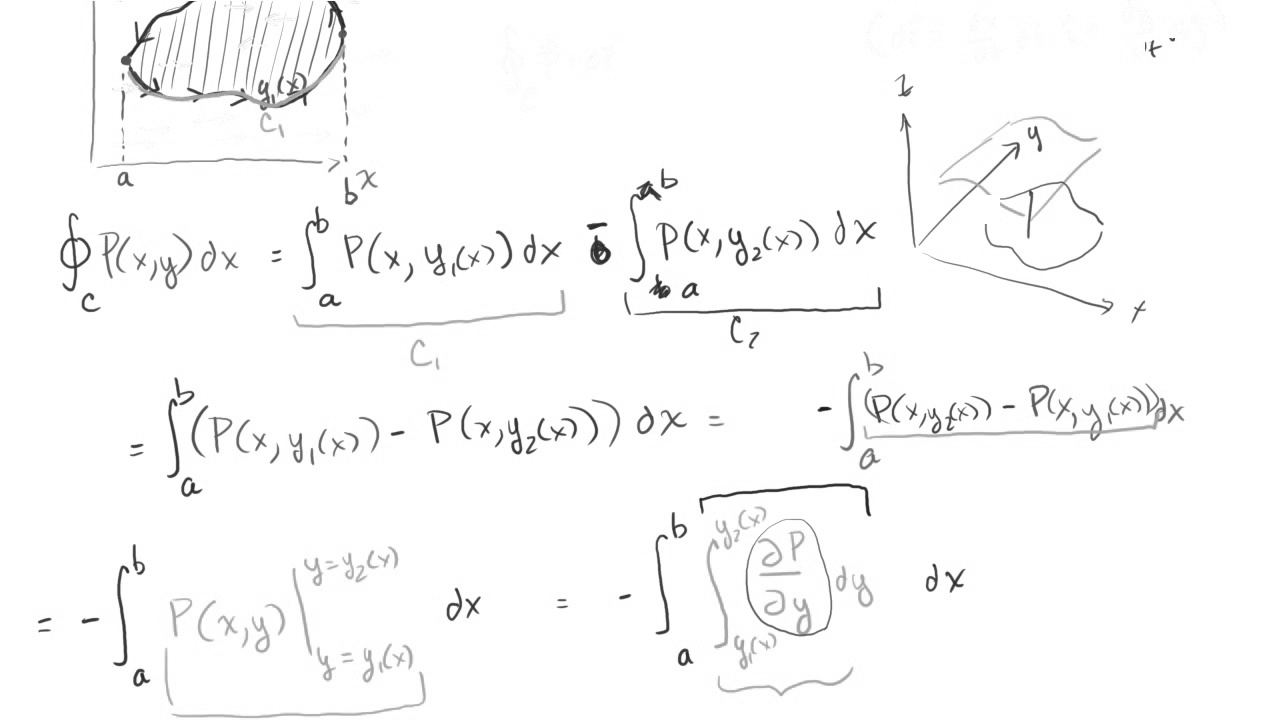 y₁(x)
C₁
a b x
z
y
x
∮_C P(x,y) dx = ∫_a^b P(x, y₁(x)) dx - ∫_a^b P(x, y₂(x)) dx
C₁ C₂
= ∫_a^b (P(x, y₁(x)) - P(x, y₂(x))) dx = - ∫_a^b (P(x, y₂(x)) - P(x, y₁(x))) dx
= - ∫_a^b P(x,y) |_{y = y₁(x)}^{y = y₂(x)} dx = - ∫_a^b ∫_{y₁(x)}^{y₂(x)} ∂P/∂y dy dx